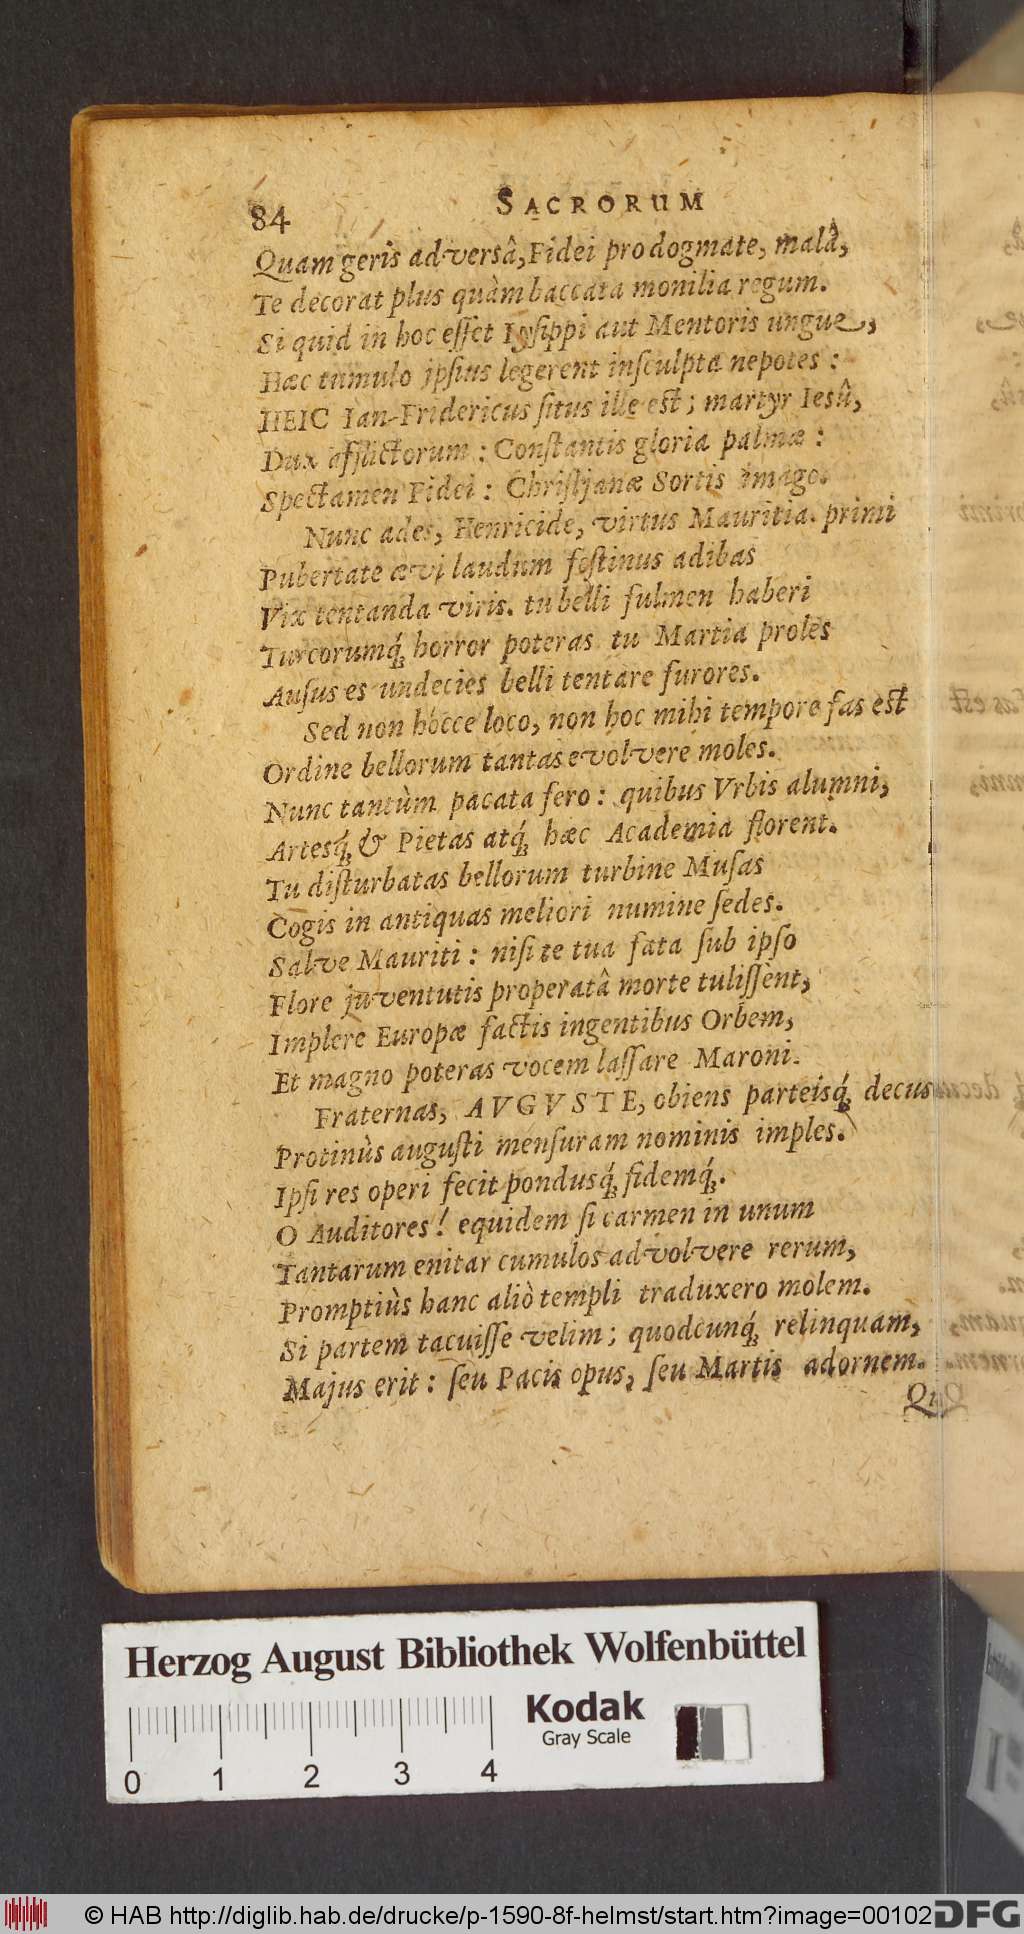 84 SACRORUM
Quam geris adversâ, Fidei pro dogmate, malâ,
Te decorat plus quàm baccata monilia regum.
Si quid in hoc esſet Lyſippi aut Mentoris ungue,
Hæc tumulo ipſius legerent inſculpta nepotes:
HEIC Ian-Fridericus ſitus ille est; martyr Iesû,
Dux afflictorum: Constantis gloria palmæ:
Spectamen Fidei: Chriſtjanæ Sortis imago.
Nunc ades, Henricide, virtus Mauritia. primi
Pubertate ævi laudum feſtinus adibas
Vix tentanda viris. tu belli fulmen haberi
Turcorumq́; horror poteras tu Martia proles
Auſus es undecies belli tentare furores.
Sed non hocce loco, non hoc mihi tempore fas est
Ordine bellorum tantas evolvere moles.
Nunc tantùm pacata fero: quibus Vrbis alumni,
Artesq́; & Pietas atq́; hæc Academia florent.
Tu diſturbatas bellorum turbine Muſas
Cogis in antiquas meliori numine ſedes.
Salve Mauriti: niſi te tua fata ſub ipſo
Flore juventutis properatâ morte tuliſſent,
Implere Europæ factis ingentibus Orbem,
Et magno poteras vocem laſſare Maroni.
Fraternas, AVGVSTE, obiens parteisq́; decus
Protinùs auguſti menſuram nominis imples.
Ipſi res operi fecit pondusq́; fidemq́;.
O Auditores! equidem ſi carmen in unum
Tantarum enitar cumulos advolvere rerum,
Promptiùs hanc aliò templi traduxero molem.
Si partem tacuiſſe velim; quodcunq́; relinquam,
Majus erit: ſeu Pacis opus, ſeu Martis adornem.
Herzog August Bibliothek Wolfenbüttel
Kodak
Gray Scale
0 1 2 3 4
© HAB http://diglib.hab.de/drucke/p-1590-8f-helmst/start.htm?image=00102
DFG